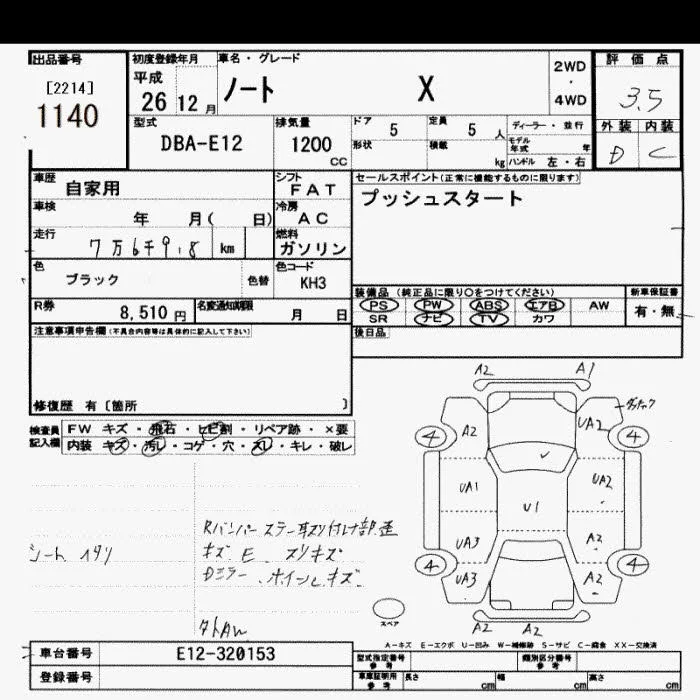 出品番号
[2214]
1140
初度登録年月
平成
26 12 月
車名・グレード
ノート X
2WD
・
4WD
評価点
3.5
外装 内装
D C
型式
DBA-E12
排気量
1200
CC
ドア
5
定員
5 人
形状
積載
kg
ディーラー・並行
モデル年式 年
ハンドル 左・右
車歴
自家用
シフト
FAT
車検
年 月( 日)
冷房
AC
走行
7万6千9.8 km
燃料
ガソリン
色
ブラック
色替
色コード
KH3
R券
8,510 円
名変通知期限
月 日
セールスポイント(正常に機能するものに限ります)
プッシュスタート
装備品 (純正品に限り〇をつけてください)
PS PW ABS エアB AW
SR ナビ TV カワ
新車保証書
有・無
後日品
注意事項申告欄(不具合内容等は具体的に記入して下さい)
修復歴 有〔箇所 〕
検査員記入欄
FW キズ・飛石・ヒビ割・リペア跡・×要
内装 キズ・汚レ・コゲ・穴・スレ・キレ・破レ
シート イタリ
Rバンパー ステー
キズ E スリキズ
Dミラー、ホイールキズ
A2 A1
A2 UA2
4 4
UA1 U1 UA2
UA3 A2
4 4
UA3 A2
A2 A2
スペア
A-キズ E-エクボ U-凹み W-補修跡 S-サビ C-腐食 XX-交換済
車台番号
E12-320153
登録番号
型式指定番号 参考
類別区分番号 参考
車庫証明用 参考
長さ cm
幅 cm
高さ cm